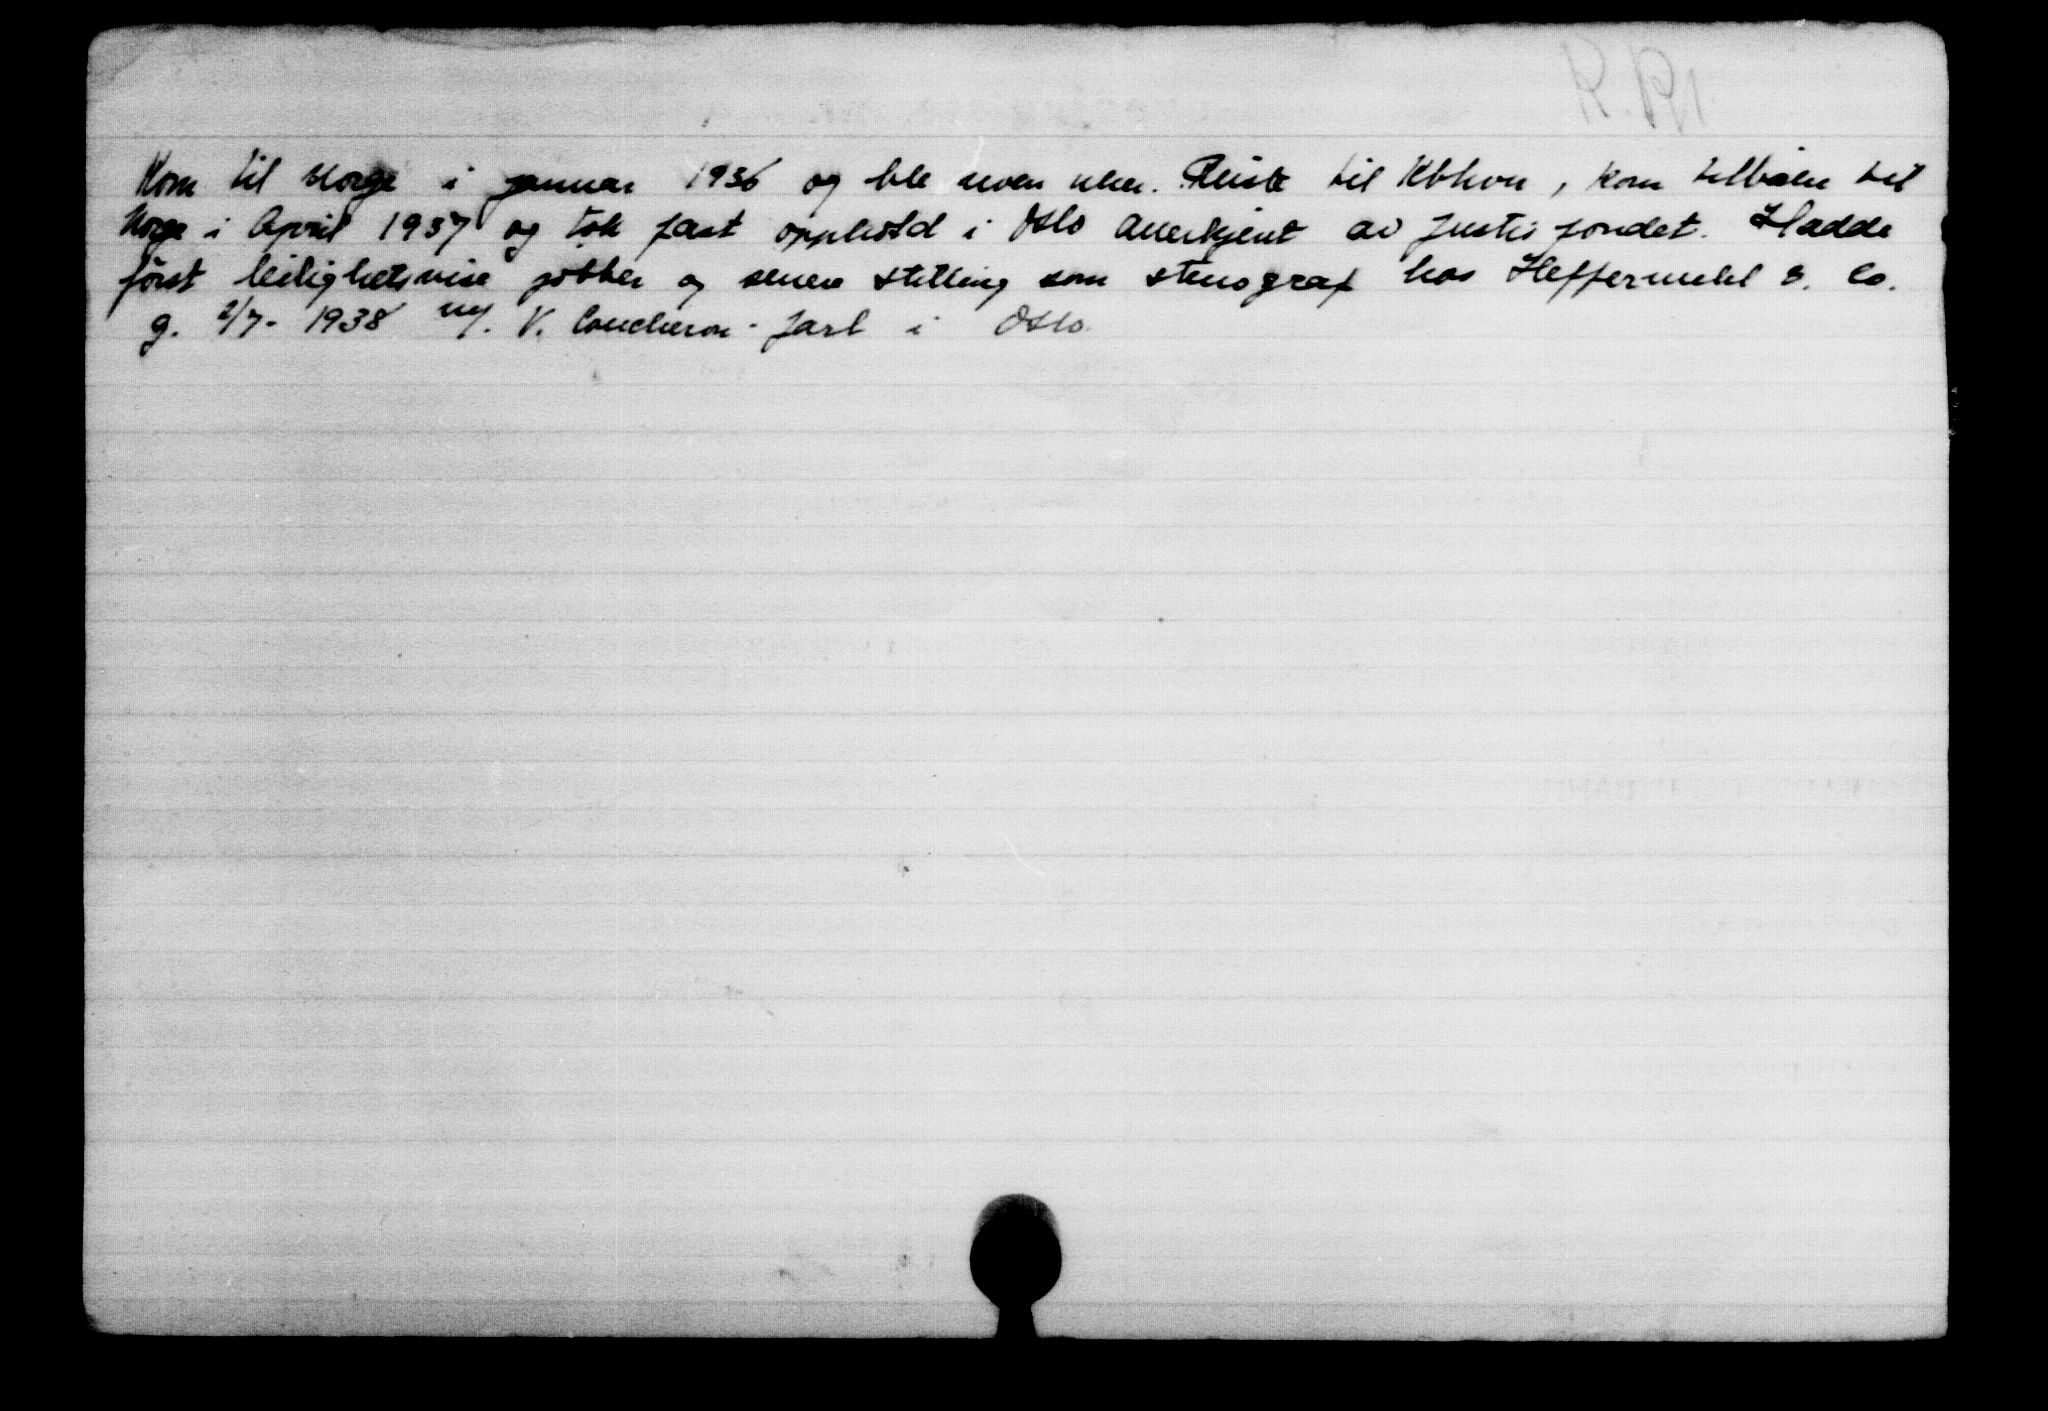 Kom til Norge i januar 1936 og ble noen uker. Reiste til Kbhvn, kom tilbake til
Norge i April 1937 og tok fast opphold i Oslo anerkjent av Justisfondet. Hadde
først leilighetsvise jobber og senere stilling som stenograf hos Heffermehl & Co.
g. 2/7- 1938 m/. V. Coucheron-Jarl i Oslo